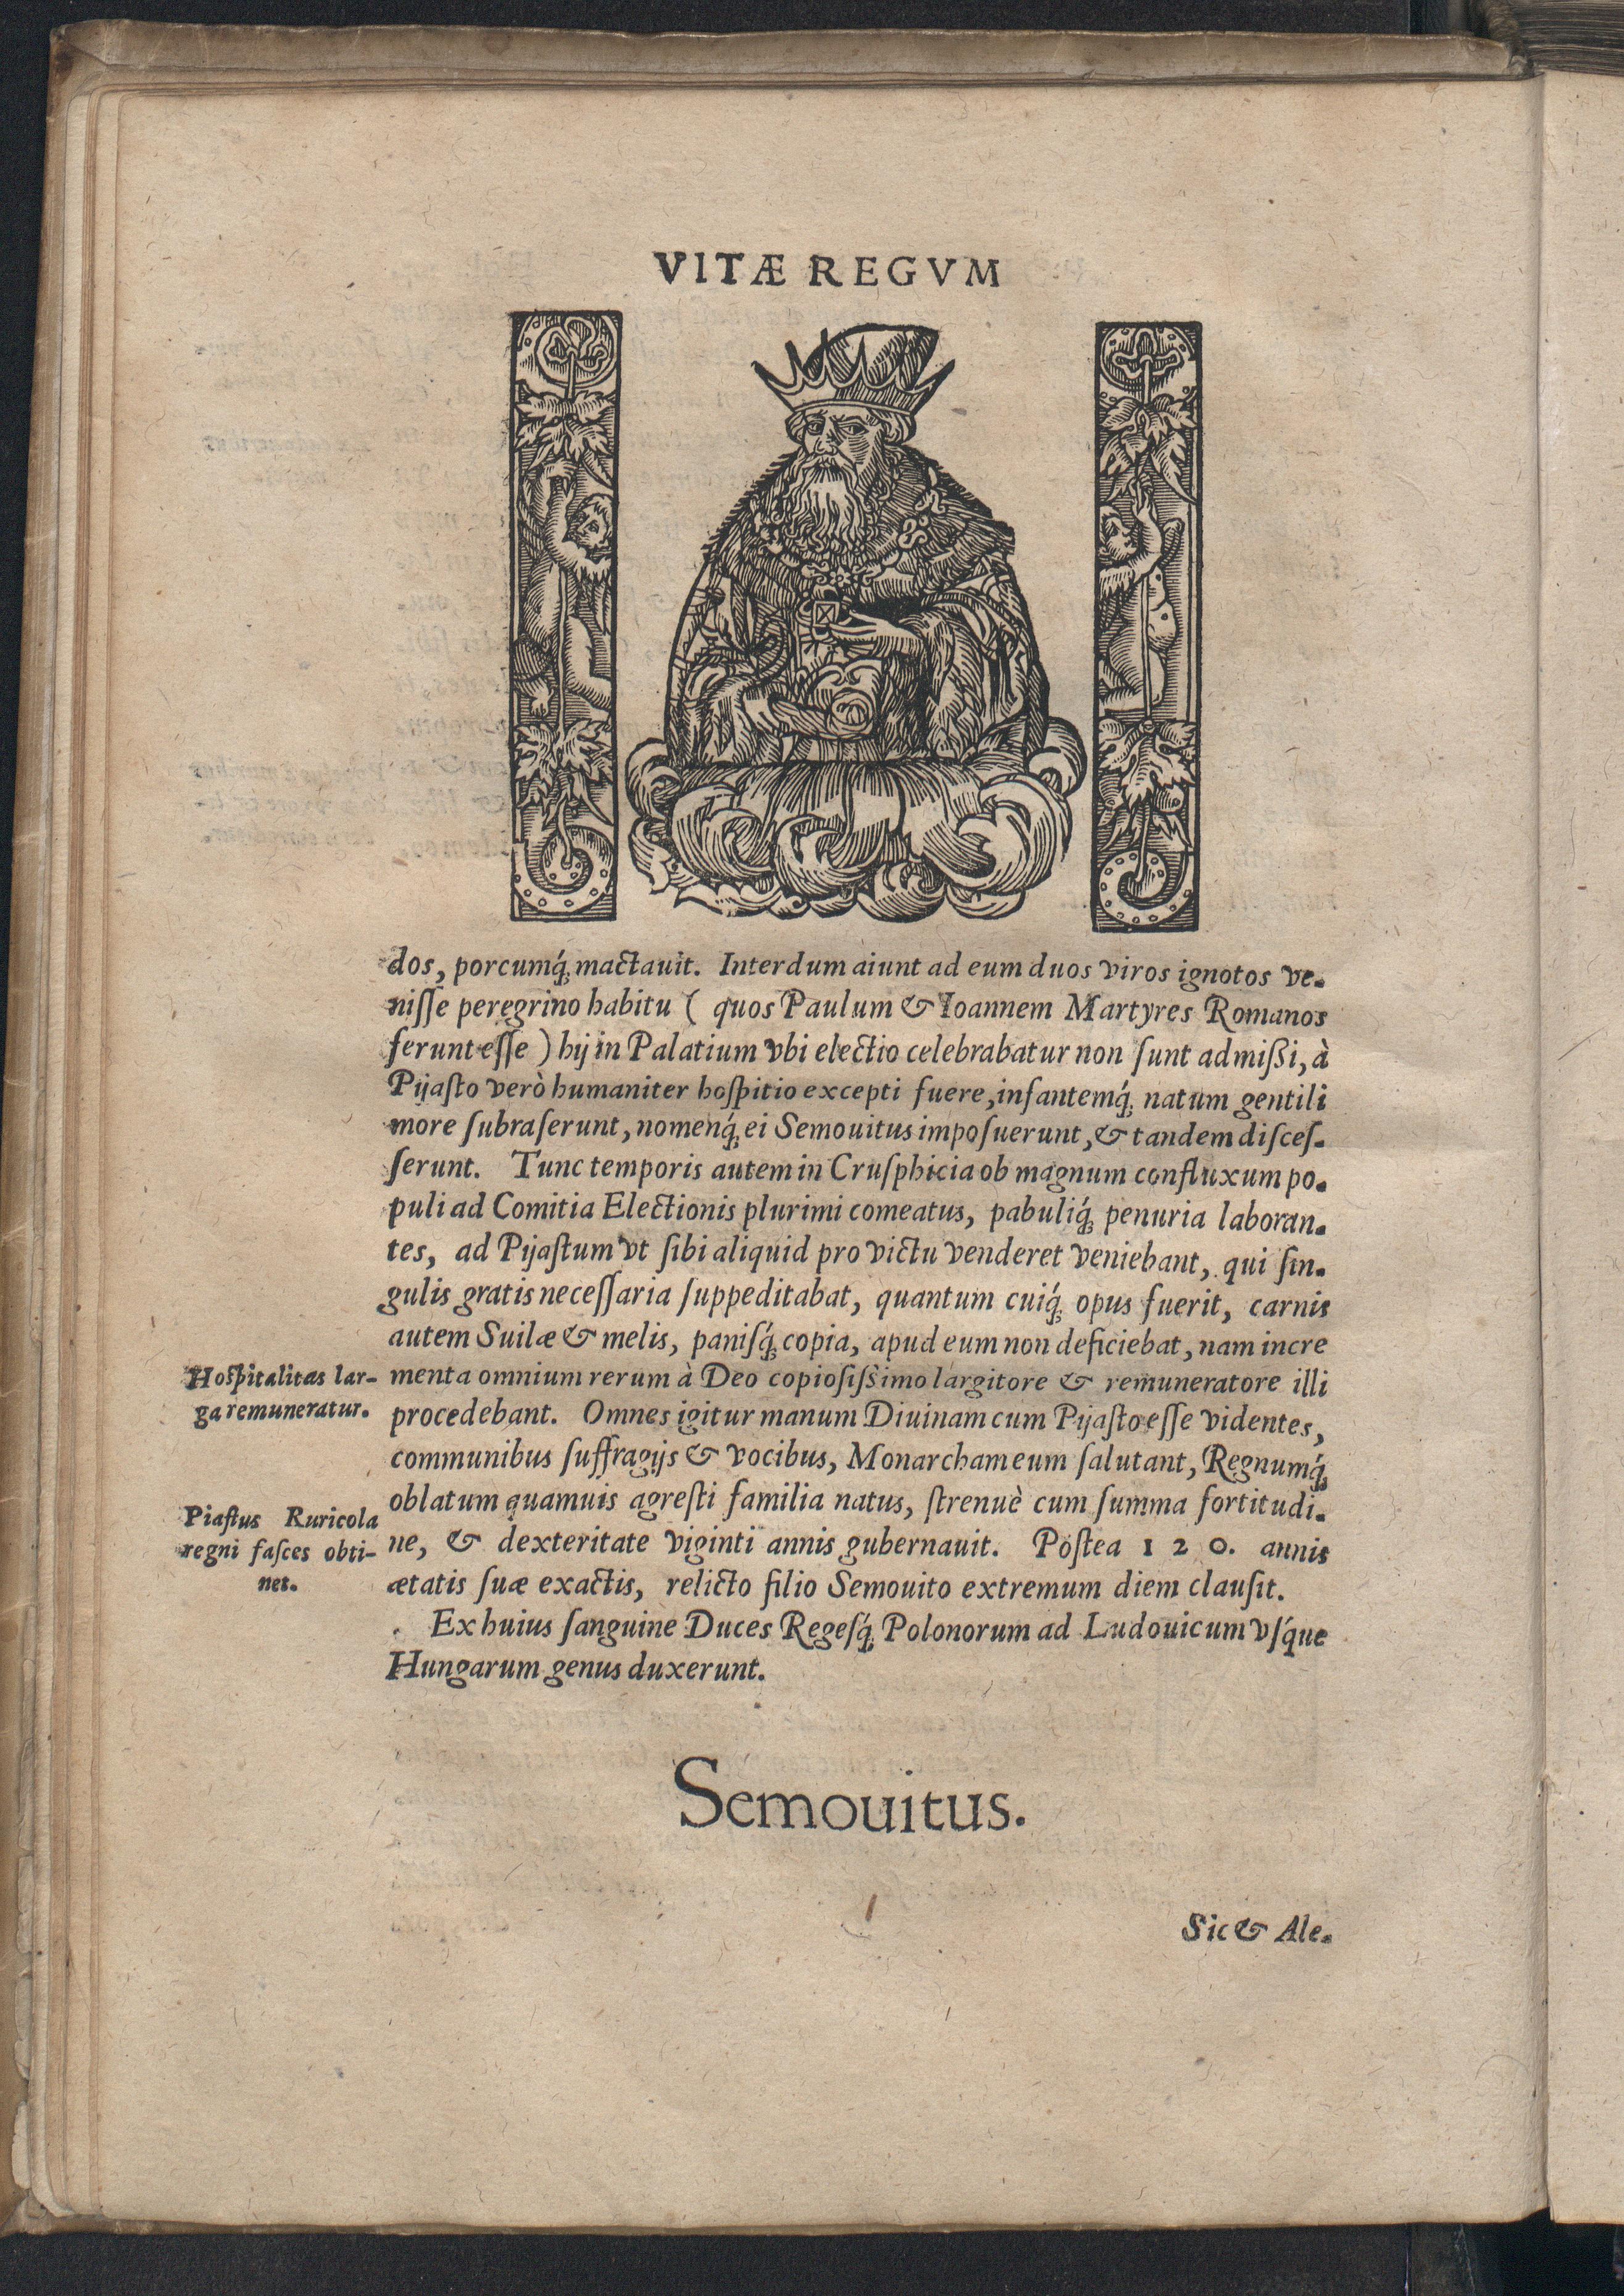 VITÆ REGVM
dos, porcumq́; mactauit. Interdum aiunt ad eum duos viros ignotos ve-
niſſe peregrino habitu ( quos Paulum & Ioannem Martyres Romanos
ferunt eſſe ) hij in Palatium vbi electio celebrabatur non ſunt admißi, à
Pijaſto verò humaniter hoſpitio excepti fuere, infantemq́; natum gentili
more ſubraſerunt, nomenq́; ei Semouitus impoſuerunt, & tandem diſceſ-
ſerunt. Tunc temporis autem in Cruſphicia ob magnum confluxum po-
puli ad Comitia Electionis plurimi comeatus, pabuliq́; penuria laboran-
tes, ad Pijaſtum vt ſibi aliquid pro victu venderet veniebant, qui ſin-
gulis gratis neceſſaria ſuppeditabat, quantum cuiq́; opus fuerit, carnis
autem Suilæ & melis, paniſq́; copia, apud eum non deficiebat, nam incre
Hoſpitalitas lar-
ga remuneratur.
menta omnium rerum à Deo copioſiſsimo largitore & remuneratore illi
procedebant. Omnes igitur manum Diuinam cum Pijaſto eſſe videntes,
communibus ſuffragijs & vocibus, Monarcham eum ſalutant, Regnumq́;
oblatum quamuis agreſti familia natus, ſtrenuè cum ſumma fortitudi-
Piaſtus Ruricola
regni faſces obti-
net.
ne, & dexteritate viginti annis gubernauit. Poſtea 120. annis
ætatis ſuæ exactis, relicto filio Semouito extremum diem clauſit.
Ex huius ſanguine Duces Regeſq́; Polonorum ad Ludouicum vſq́ue
Hungarum genus duxerunt.
Semouitus.
Sic & Ale-